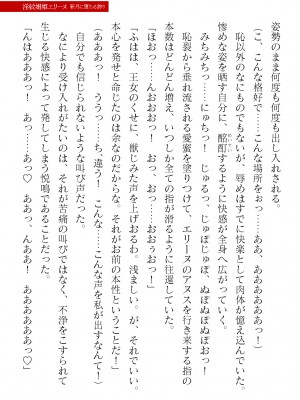 淫紋娼姫エリーヌ 新月に堕ちる誇り
姿勢のまま何度も何度も出し入れされる。
（こ、こんな格好で……こんな場所をぉっ……ああ、ああああぁっ！）
恥以外のなにものでもないが、辱めはすでに快楽として肉体が憶え込んでいた。
惨めな姿を晒す自分に、酩酊するように快感が全身へ広がっていく。
みちみちっ……にゅちっ！　じゅるっ、じゅぽじゅぽ、ぬぽぬぽぬぽおっ！
恥裂から垂れ流される愛蜜を塗りつけて、エリーヌのアヌスを行き来する指の
本数はどんどん増え、いつしか全ての指が滑るように往還していた。
「ほおっ……んおおおっ！　おっ、おっ……おおぅおっ！」
「ふはは、王女のくせに、獣じみた声を上げおるわ。浅ましい。が、それでいい。
本心を発せと命じたのは余なのだからな。それがお前の本性ということだ！」
（ああっ　ううっ……ち、違う！　こんな……こんな声を私が出すなんて！）
自分でも信じられない叫びであった。
なにより受け入れがたいのは、それが苦痛の叫びではなく、不浄をこすられて
生じる快感によって発してしまう悦鳴であることだった。
「んはあああっ♡　ああっ、んああ！　ああああぁっ♡」